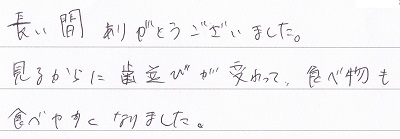 長い間ありがとうございました。
見るからに歯並びが変わって、食べ物も
食べやすくなりました。